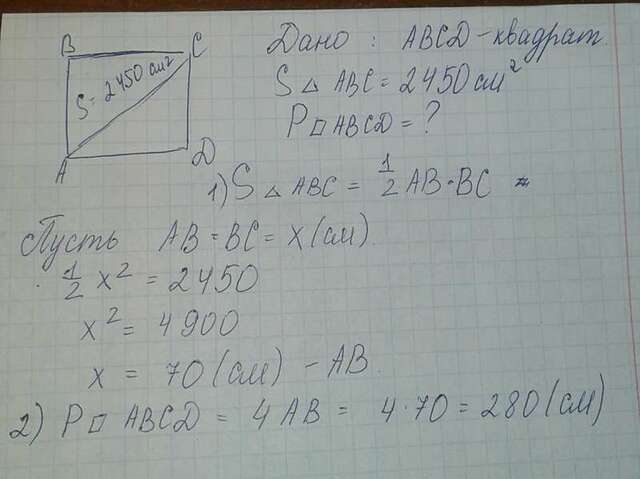 B C
S = 2450 см²
A D
Дано : ABCD - квадрат
S △ ABC = 2450 см²
P □ ABCD = ?
1) S △ ABC = 1/2 AB · BC =
Пусть AB = BC = x (см)
1/2 x² = 2450
x² = 4900
x = 70 (см) - AB
2) P □ ABCD = 4 AB = 4 · 70 = 280 (см)